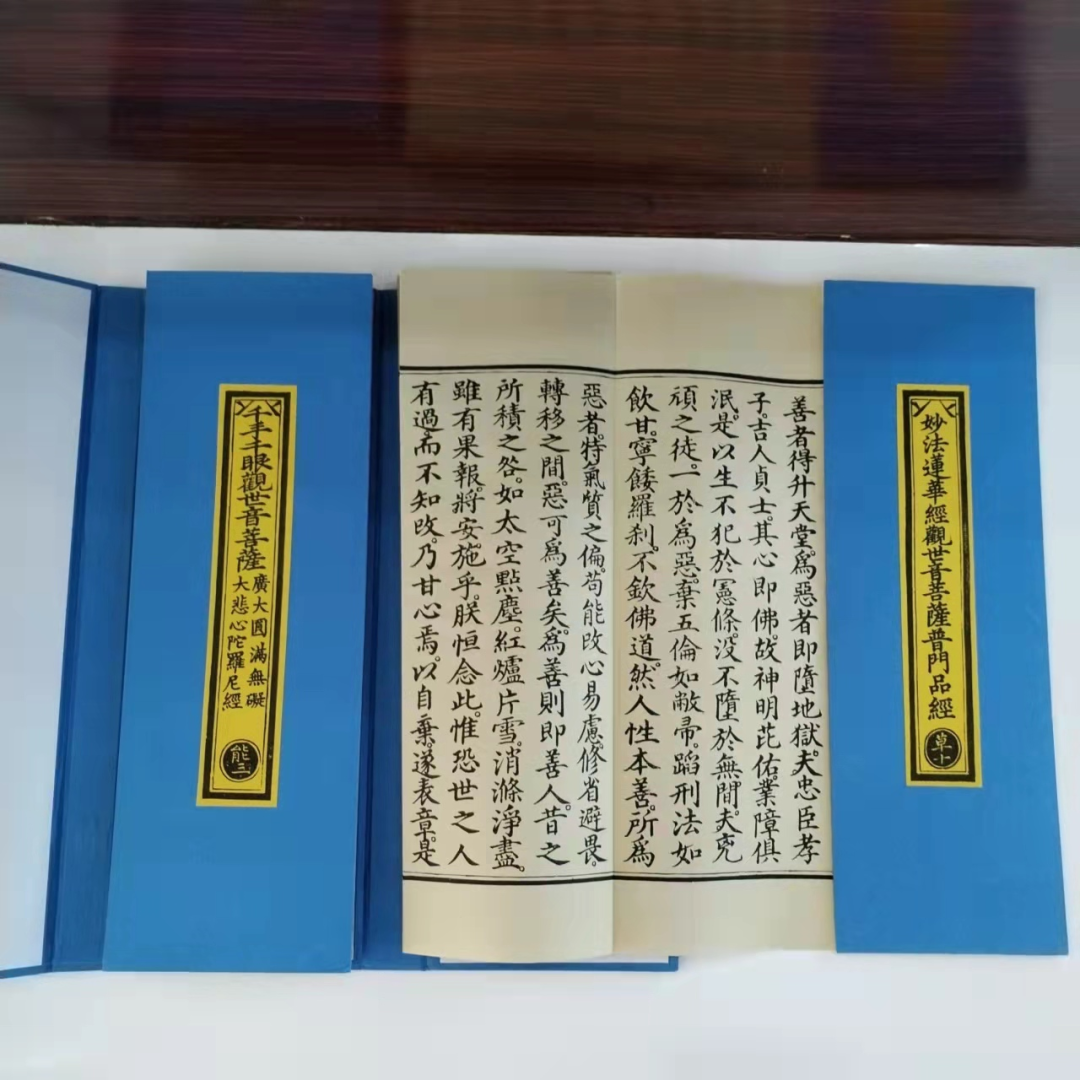 妙法蓮華經觀世音菩薩普門品經
草十
善者得升天堂爲惡者即墮地獄夫忠臣孝
子吉人貞士其心即佛故神明芘佑業障俱
泯是以生不犯於憲條没不墮於無間夫兇
頑之徒一於爲惡棄五倫如敝帚蹈刑法如
飲甘寧餧羅刹不欽佛道然人性本善所爲
惡者特氣質之偏苟能改心易慮修省避畏
轉移之間惡可爲善矣爲善則即善人昔之
所積之咎如太空點塵紅爐片雪消滌淨盡
雖有果報將安施乎朕恒念此惟恐世之人
有過而不知改乃甘心焉以自棄遂表章是
千手千眼觀世音菩薩
廣大圓滿無礙
大悲心陀羅尼經
能三